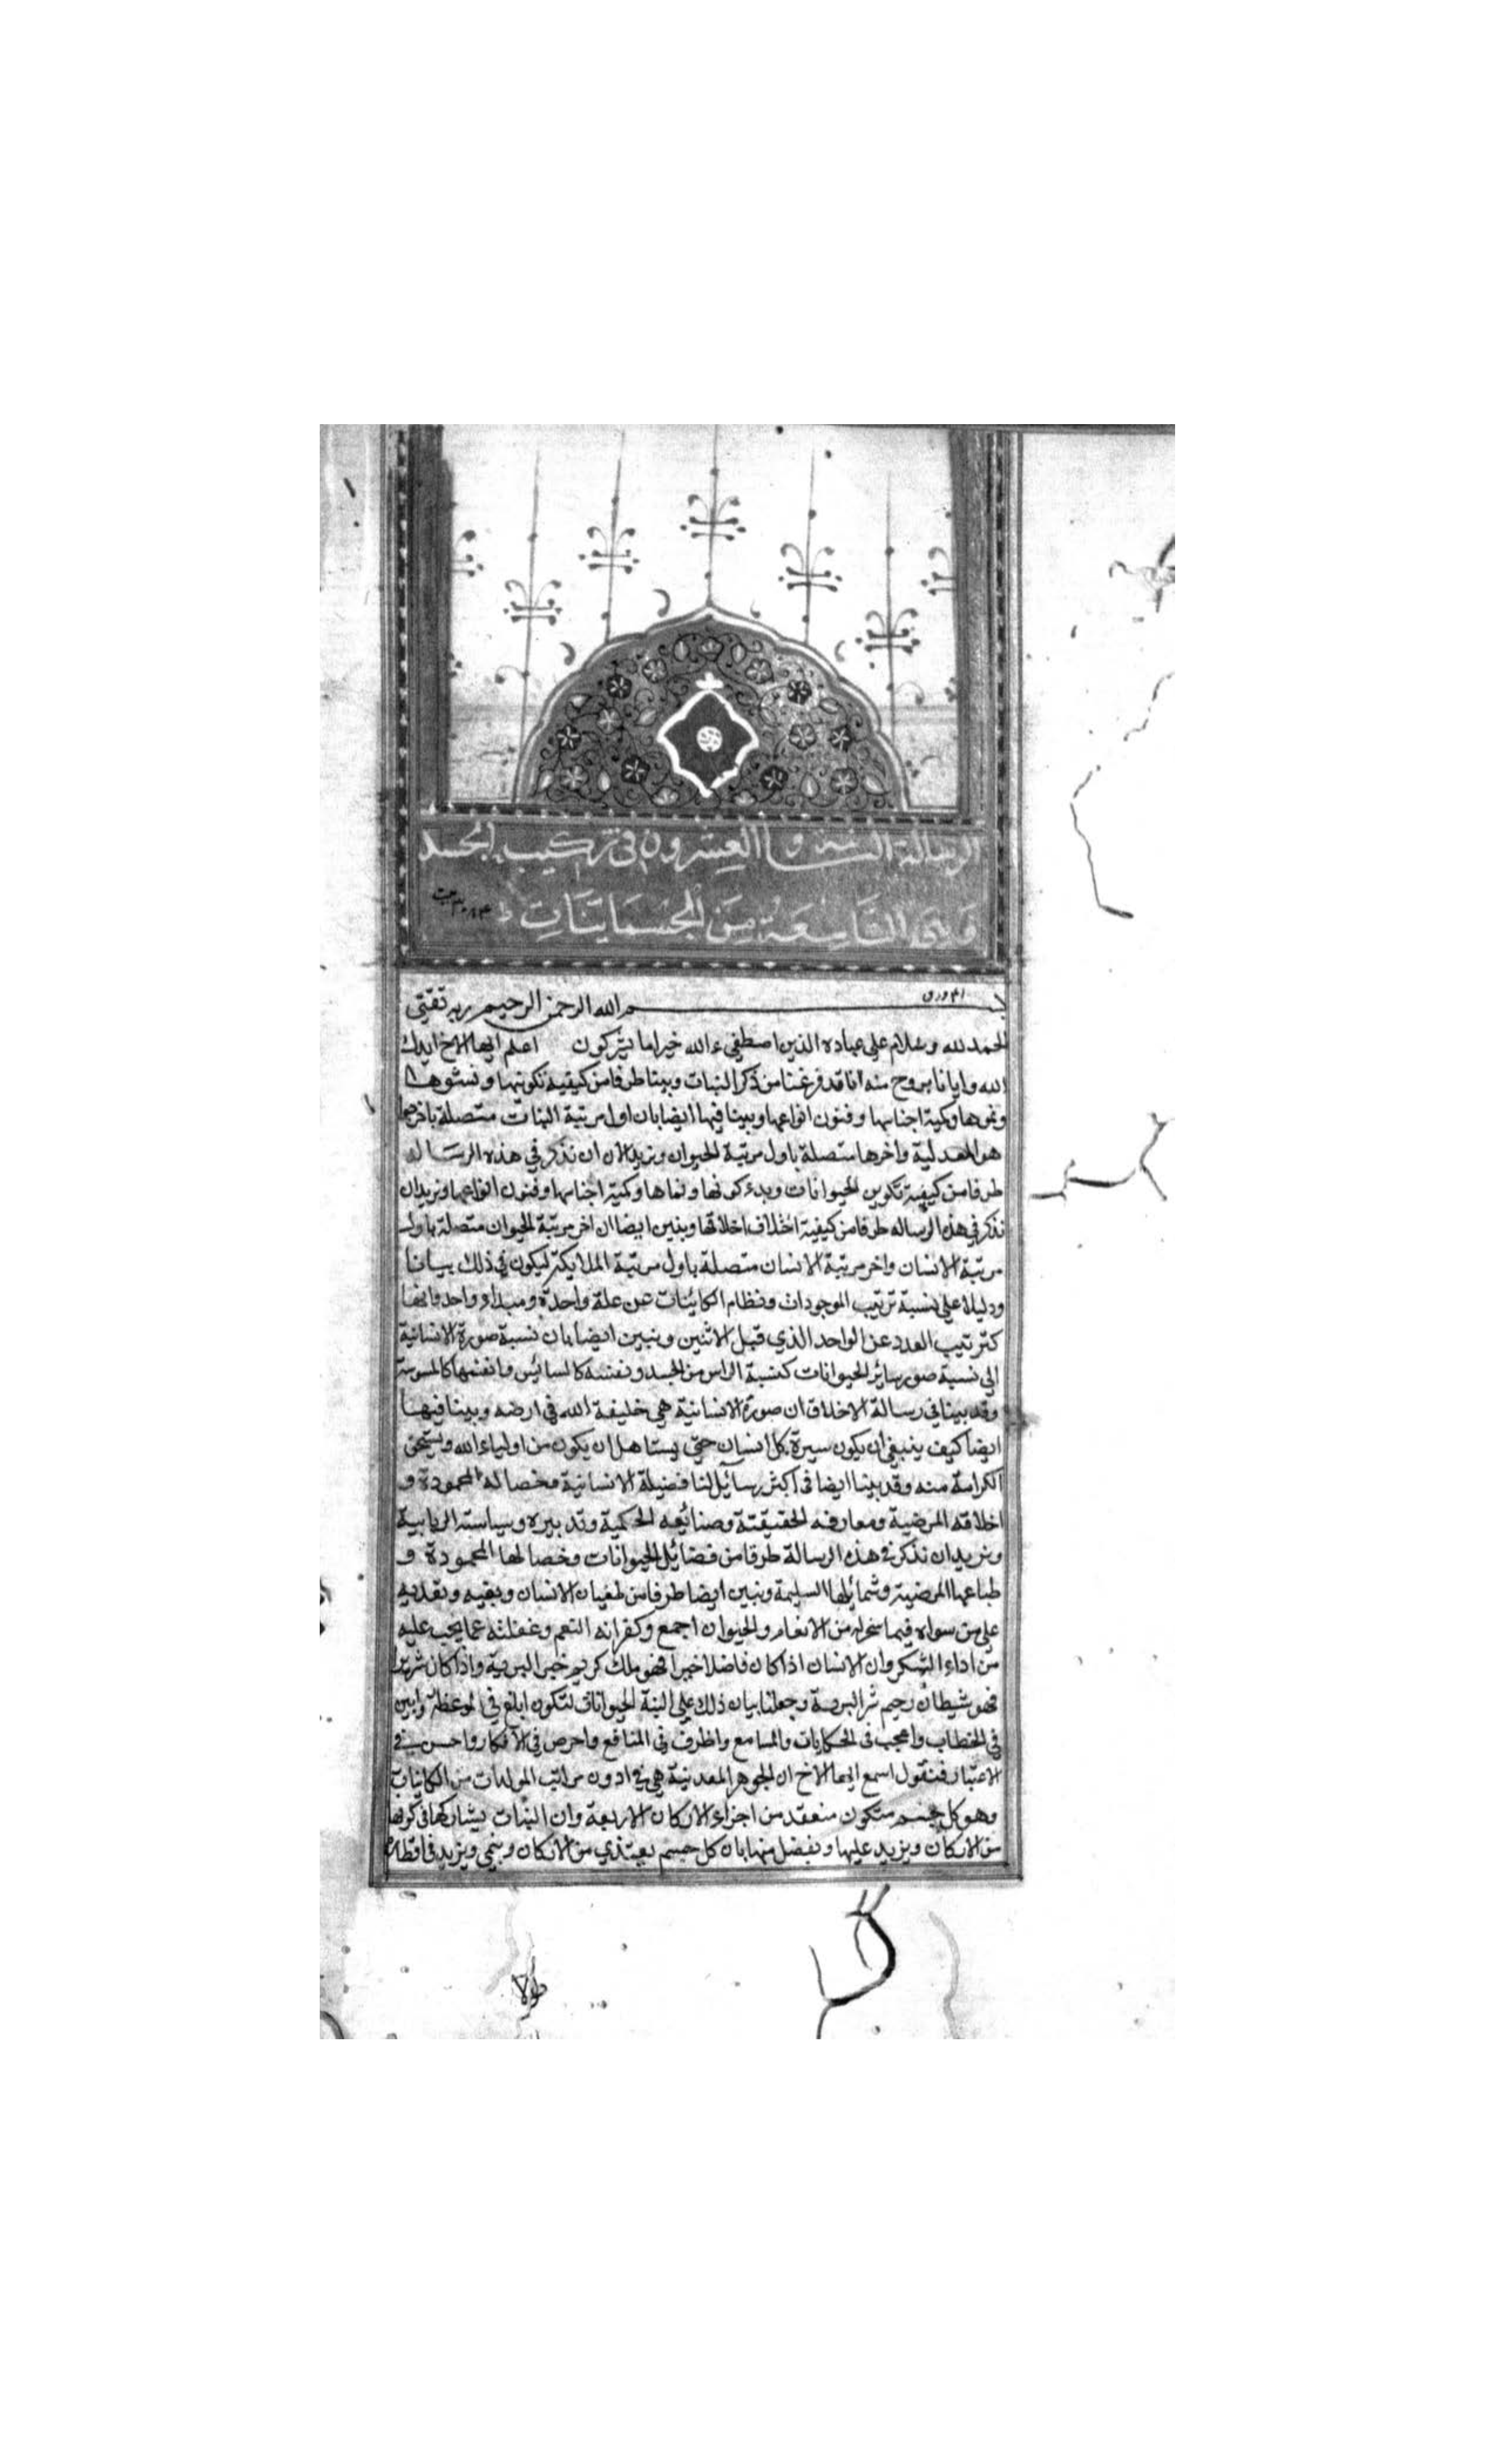 الرسالة الثانية والعشرون في تركيب الجسد
وهي التاسعة من الجسمانيات
بسم الله الرحمن الرحيم ربه ثقتي
الحمد لله وسلام على عباده الذين اصطفى ءالله خير اما يشركون اعلم ايها الاخ ايدك
الله وايانا بروح منه انا قد فرغنا من ذكر النبات وبينا طرفا من كيفية تكونها ونشوها
ونموها وكمية اجناسها وفنون انواعها وبينا فيها ايضا بان اول مرتبة النبات متصلة باخرها
هو المعدنية واخرها متصلة باول مرتبة الحيوان ونريد الان ان نذكر في هذه الرسالة
طرفا من كيفية تكوين الحيوانات وبدء كونها ونماها وكمية اجناسها وفنون انواعها ونريد ان
نذكر في هذه الرساله طرفا من كيفية اختلاف اخلاقها ونبين ايضا ان اخر مرتبة الحيوان متصلة باول
مرتبة الانسان واخر مرتبة الانسان متصلة باول مرتبة الملايكة ليكون في ذلك بيانا
ودليلا على نسبة ترتيب الموجودات ونظام الكائنات عن علة واحدة ومبداء واحد وانها
كترتيب العدد عن الواحد الذي قبل الاثنين ونبين ايضا بان نسبة صورة الانسانية
الى نسبة صور ساير الحيوانات كنسبة الراس من الجسد ونفسه كالسائس وانفسها كالمسوسة
وقد بينا في رسالة الاخلاق ان صورة الانسانية هي خليفة الله في ارضه وبينا فيها
ايضا كيف ينبغي ان يكون سيرة كل انسان حتى يستاهل ان يكون من اولياء الله ويستحق
الكرامة منه وقد بينا ايضا في اكثر رسائل لنا فضيلة الانسانية وخصاله المحمودة و
اخلاقه المرضية ومعارفه الحقيقة وصنائعه الحكمية وتدبيره وسياسته الربابية
ونريد ان نذكر في هذه الرسالة طرفا من فضائل الحيوانات وخصالها المحمودة و
طباعها المرضية وشمائلها السليمة ونبين ايضا طرفا من طغيان الانسان وبغيه وتعديه
على من سواه فيما سخر له من الانعام والحيوان اجمع وكفرانه النعم وغفلته عما يجب عليه
من اداء الشكر وان الانسان اذا كان فاضلا خيرا فهو ملك كريم خير البرية واذا كان شريرا
فهو شيطان رجيم شر البرية وجعلنا بيان ذلك على السنة الحيوانات لتكون ابلغ في الموعظة وابين
في الخطاب واعجب في الحكايات والمسامع واظرف في المنافع واحرص في الافكار واحسن في
الاعتبار فنقول اسمع ايها الاخ ان الجوهر المعدنية هي في ادون مراتب المولدات من الكائنات
وهو كل جسم متكون منعقد من اجزاء الاركان الاربعة وان النبات يشاركها في كونها
من الاركان ويزيد عليها وتفضل منها بان كل جسم يغتذي من الاركان وينمي ويزيد في اقطاره